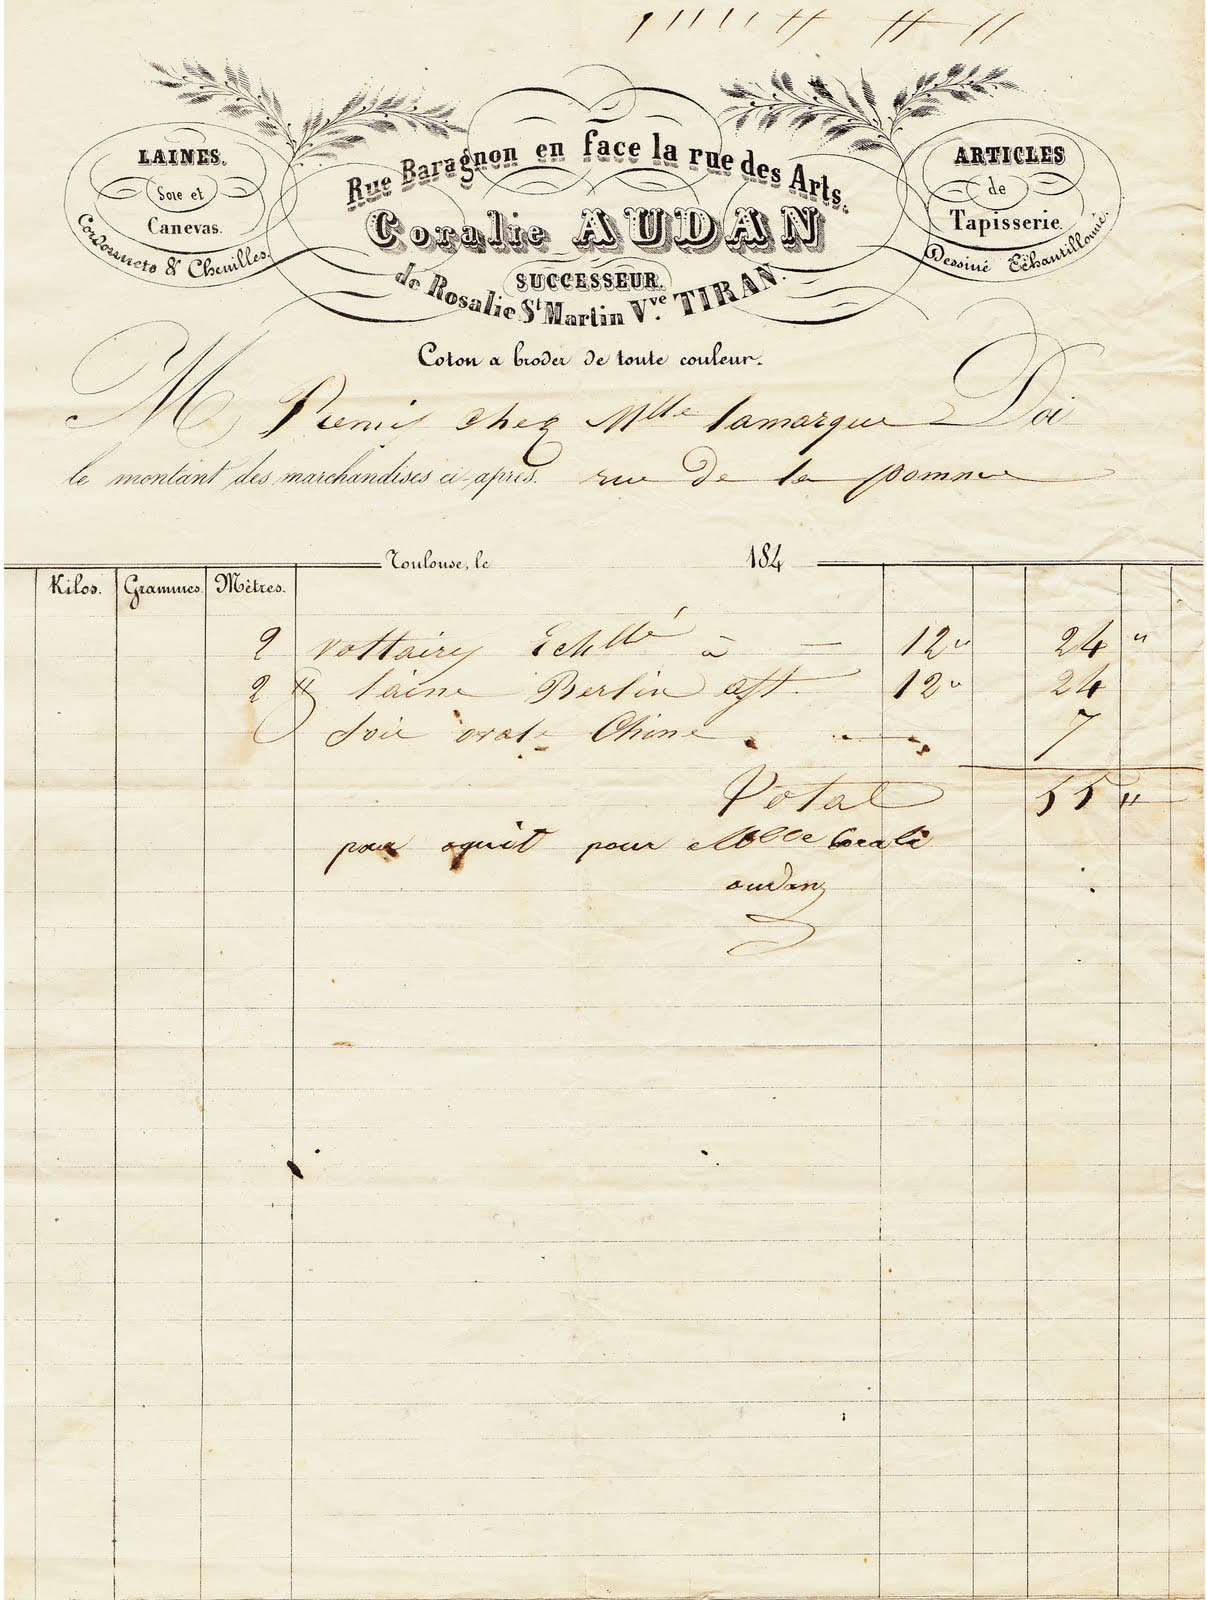 LAINES.
Soie et
Canevas.
Cordonnets & Chenilles.
Rue Baragnon en face la rue des Arts.
Coralie AUDAN
SUCCESSEUR.
de Rosalie St Martin Vve TIRAN.
ARTICLES
de
Tapisserie.
Dessiné Echantillonné.
Coton a broder de toute couleur.
M chez Mlle lamarque Doi
le montant des marchandises ci-après. rue de la pomme
Toulouse, le 184
Kilos. Grammes Mètres.
2 voltaires Echllé à 12 " 24 "
2 laine Berlin aſst. 12 " 24
Soie ovale Chine 7
Total 55 "
pour aquit pour Mlle Corali
audan